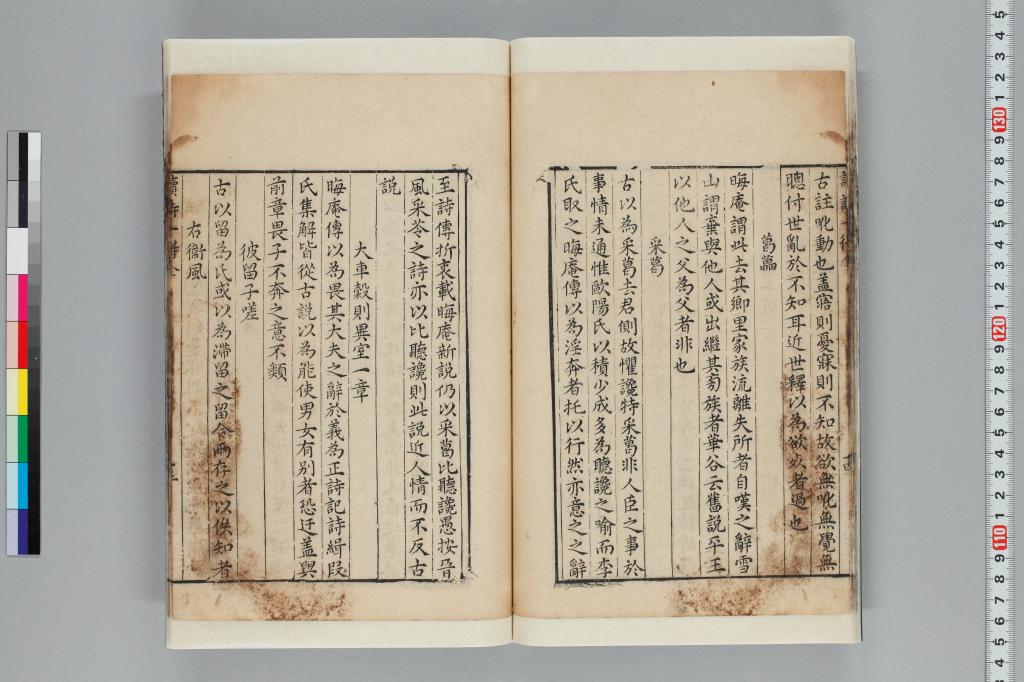 古註吪動也蓋寤則憂寐則不知故欲無吪無覺無
聰付世亂於不知耳近世釋以為欲死者過也
葛藟
晦庵謂此去其鄉里家族流離失所者自嘆之辭雪
山謂棄與他人或出繼其旁族者華谷云舊說平王
以他人之父為父者非也
采葛
古以為采葛去君側故懼讒特采葛非人臣之事於
事情未通惟歐陽氏以積少成多為聽讒之喻而李
氏取之晦庵傳以為淫奔者托以行然亦意之之辭
至詩傳折衷載晦庵新說仍以采葛比聽讒愚按晉
風采苓之詩亦以比聽讒則此說近人情而不反古
說
大車榖則異室一章
晦庵傳以為畏其大夫之辭於義為正詩記詩緝段
氏集解皆從古說以為能使男女有別者恐迂蓋與
前章畏子不奔之意不類
彼留子嗟
古以留為氏或以為滯留之留合兩存之以俟知者
右衞風